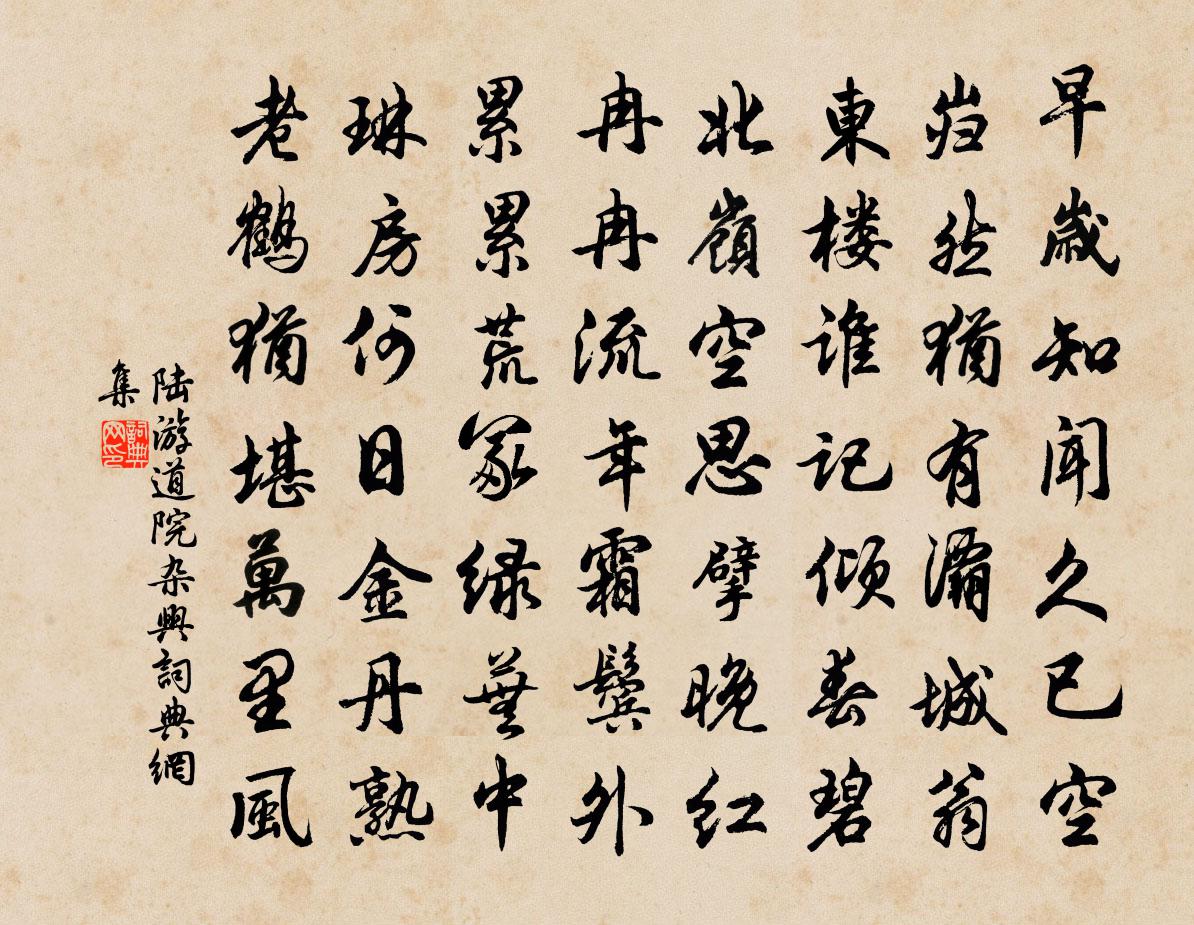 早歲知聞久已空
岿然猶有灞城翁
東楼誰記倾春碧
北嶺空思擘晚红
冉冉流年霜鬓外
累累荒冢绿蕪中
琳房何日金丹熟
老鶴猶堪萬里風
陆游道院杂興詞典網
集
詞典
网印